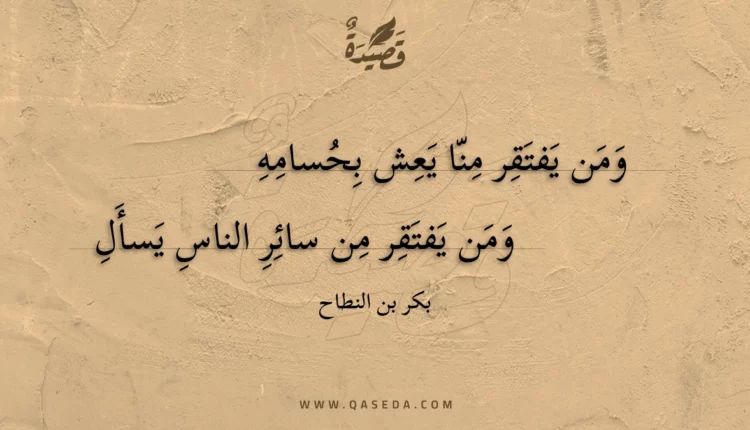 قَصِيدَةٌ
وَمَن يَفتَقِر مِنّا يَعِش بِحُسامِهِ
وَمَن يَفتَقِر مِن سائِرِ الناسِ يَسأَلِ
بكر بن النطاح
WWW.QASEDA.COM